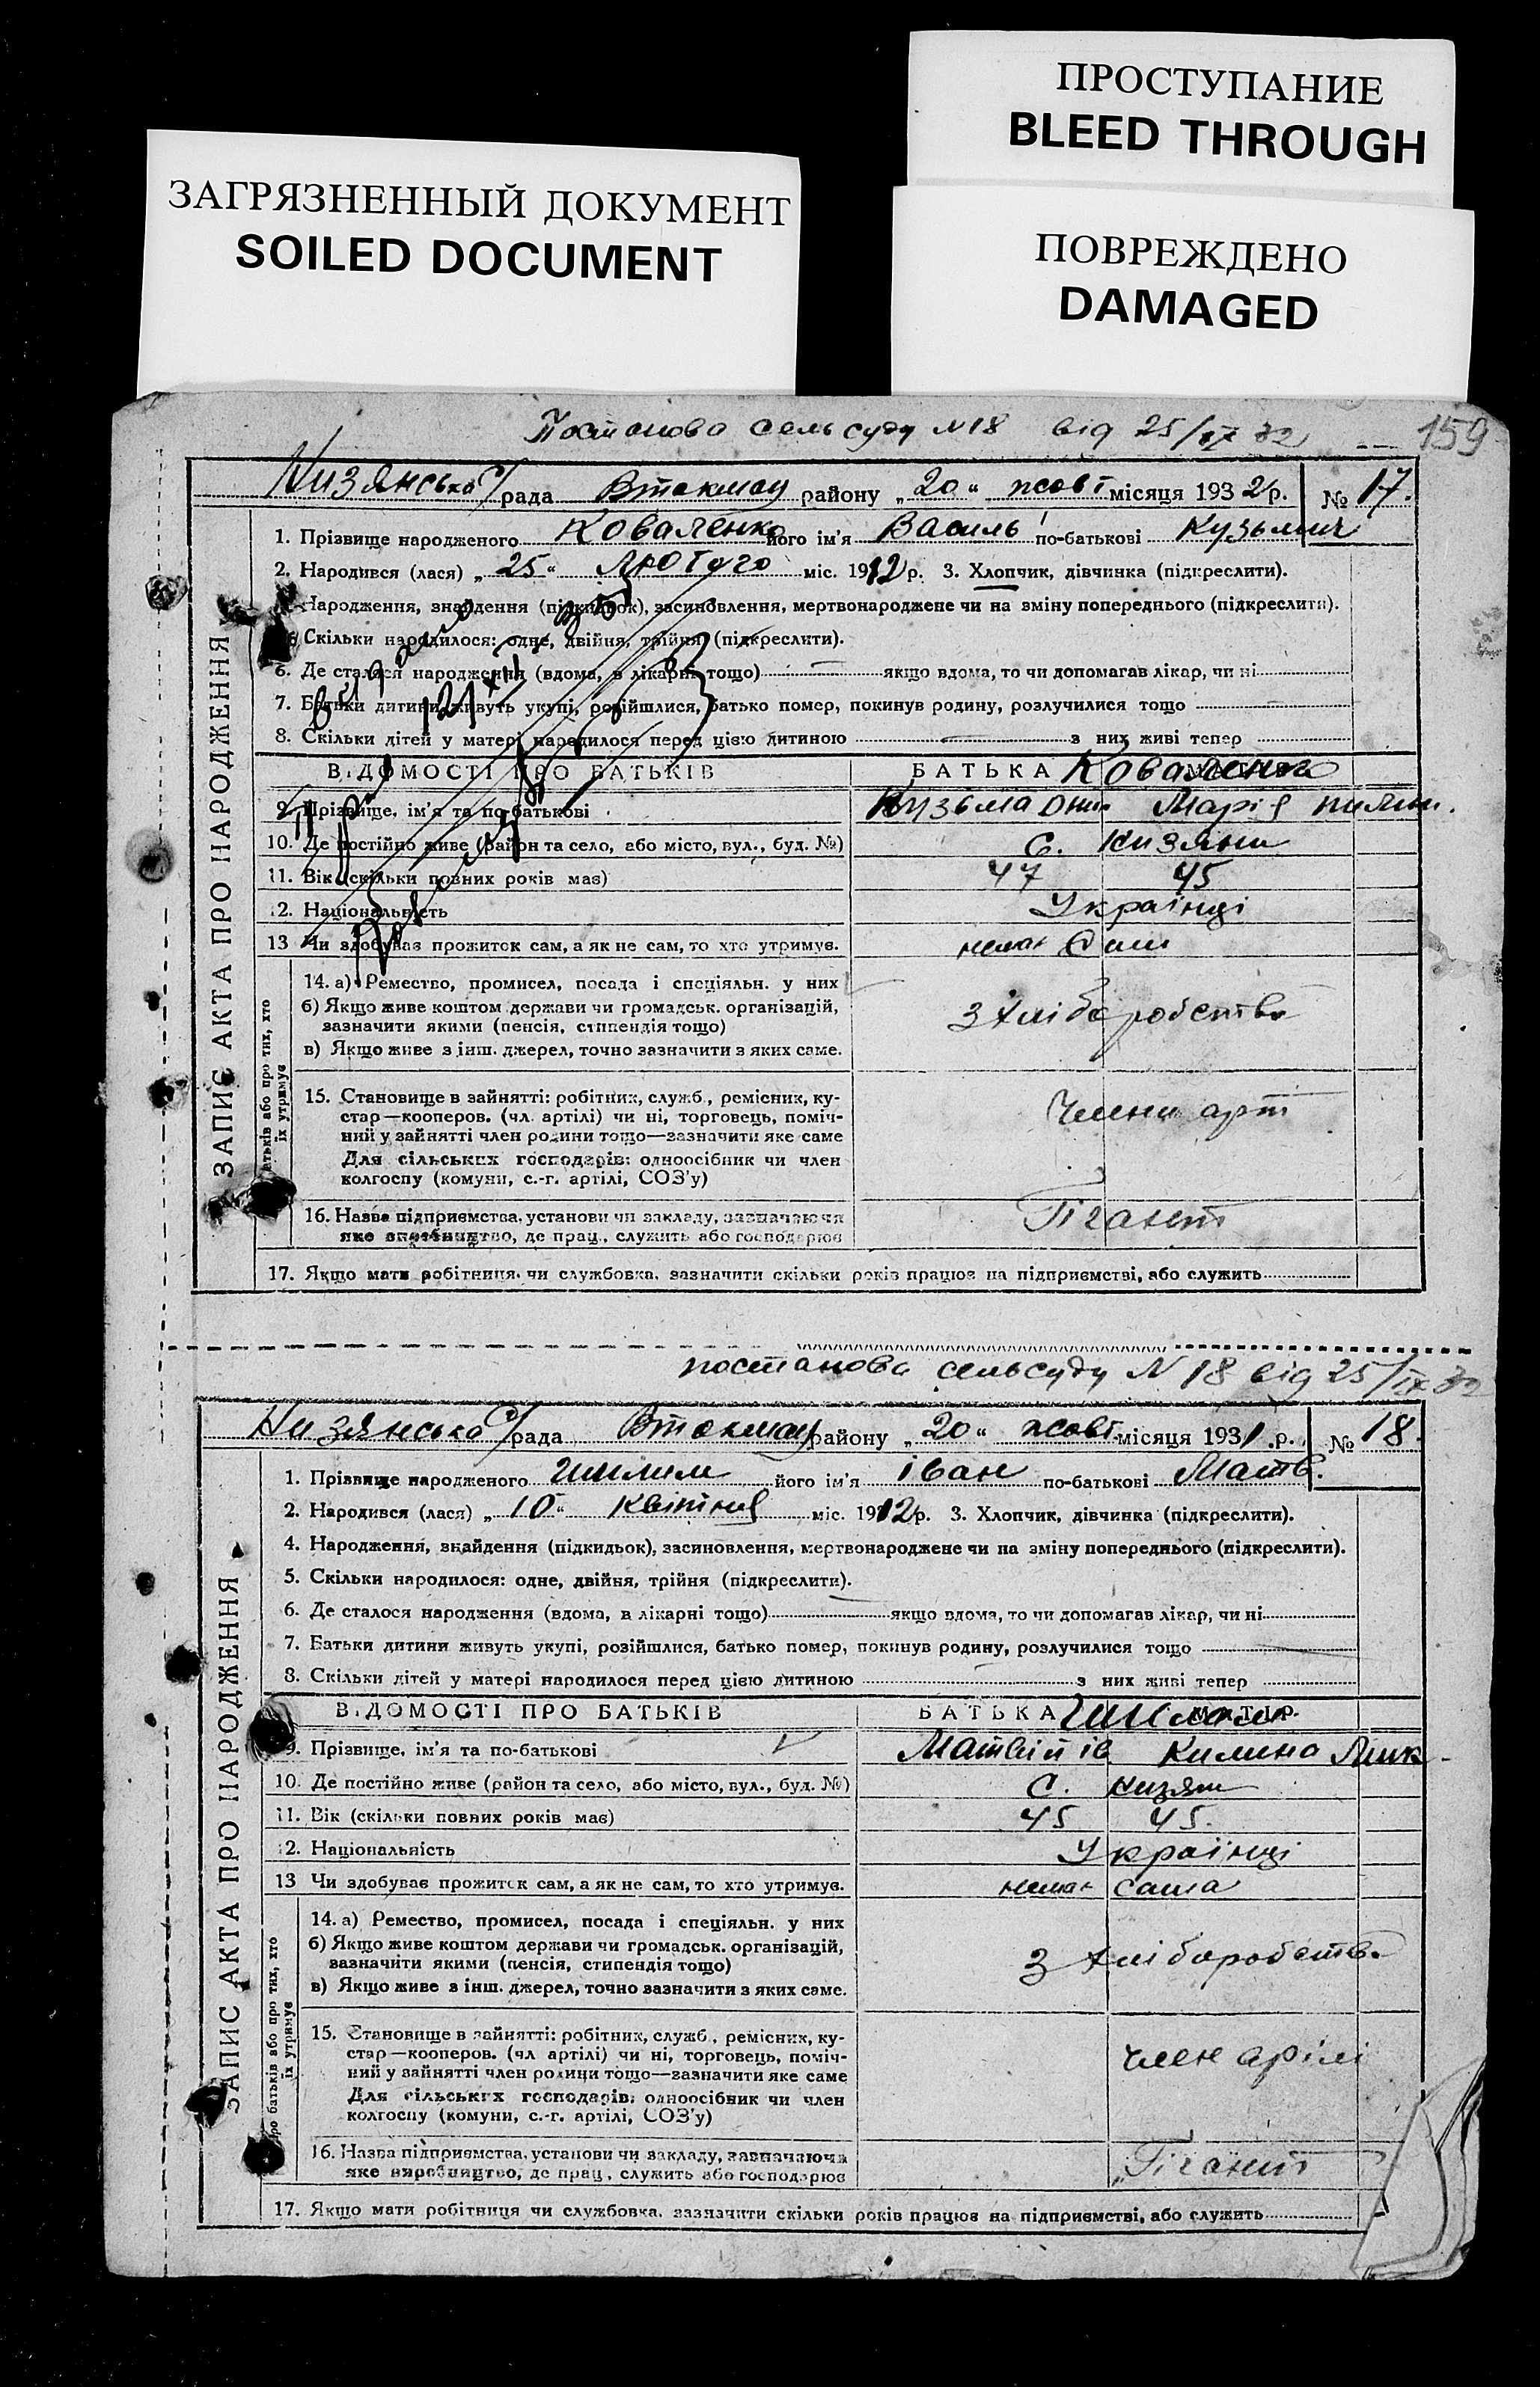 ПРОСТУПАНИЕ
BLEED THROUGH
ЗАГРЯЗНЕННЫЙ ДОКУМЕНТ
SOILED DOCUMENT
ПОВРЕЖДЕНО
DAMAGED
Постанова сельсуду N 18 від 25/IX 32 159
Кизянська с/рада Втокмац району „20“ жовт місяця 1932 р. № 17.
1. Прізвище народженого Коваленко його ім'я Василь по-батькові Кузьмич
2. Народився (лася) „25“ Лютого міс. 1912 р. 3. Хлопчик, дівчинка (підкреслити).
Народження, знайдення (підкидьок), засиновлення, мертвонароджене чи на зміну попереднього (підкреслити).
Скільки народилося: одне, двійня, трійня (підкреслити).
6. Де сталося народження (вдома, в лікарні тощо) якщо вдома, то чи допомагав лікар, чи ні
7. Батьки дитини живуть укупі, розійшлися, батько помер, покинув родину, розлучилися тощо
8. Скільки дітей у матері народилося перед цією дитиною з них живі тепер
ВІДОМОСТІ ПРО БАТЬКІВ БАТЬКА Коваленко
9. Прізвище, ім'я та по-батькові Кузьма Марія
10. Де постійно живе (район та село, або місто, вул., буд. №) С. Кизяни
11. Вік (скільки повних років має) 47 45
12. Національність Українці
13 Чи здобуває прожиток сам, а як не сам, то хто утримує.
14. а) Ремество, промисел, посада і спеціяльн. у них
б) Якщо живе коштом держави чи громадськ. організацій,
зазначити якими (пенсія, стипендія тощо) З хліборобства
в) Якщо живе з інш. джерел, точно зазначити з яких саме.
15. Становище в зайнятті: робітник, служб., ремісник, ку-
стар—кооперов. (чл. артілі) чи ні, торговець, поміч- Члени арт
ний у зайнятті член родини тощо—зазначити яке саме
Для сільських господарів: одноосібник чи член
колгоспу (комуни, с.-г. артілі, СОЗ'у)
16. Назва підприємства, установи чи закладу, зазначаючи Гігант
яке виробництво, де прац., служить або господарює
17. Якщо мати робітниця чи службовка, зазначити скільки років працює на підприємстві, або служить
ЗАПИС АКТА ПРО НАРОДЖЕННЯ
батьків або про тих, хто
їх утримує
постанова сельсуду N 18 від 25/IX 32
Кизянська с/рада Втокмац району „20“ жовт місяця 1931 р. № 18.
1. Прізвище народженого його ім'я іван по-батькові Матв.
2. Народився (лася) „10“ Квітня міс. 1912 р. 3. Хлопчик, дівчинка (підкреслити).
4. Народження, знайдення (підкидьок), засиновлення, мертвонароджене чи на зміну попереднього (підкреслити).
5. Скільки народилося: одне, двійня, трійня (підкреслити).
6. Де сталося народження (вдома, в лікарні тощо) якщо вдома, то чи допомагав лікар, чи ні
7. Батьки дитини живуть укупі, розійшлися, батько помер, покинув родину, розлучилися тощо
8. Скільки дітей у матері народилося перед цією дитиною з них живі тепер
ВІДОМОСТІ ПРО БАТЬКІВ БАТЬКА МАТІР.
9. Прізвище, ім'я та по-батькові Матвій ів Килина
10. Де постійно живе (район та село, або місто, вул., буд. №) С. Кизяни
11. Вік (скільки повних років має) 45 45.
12. Національність Українці
13 Чи здобуває прожиток сам, а як не сам, то хто утримує. сама
14. а) Ремество, промисел, посада і спеціяльн. у них
б) Якщо живе коштом держави чи громадськ. організацій,
зазначити якими (пенсія, стипендія тощо) З хліборобства
в) Якщо живе з інш. джерел, точно зазначити з яких саме.
15. Становище в зайнятті: робітник, служб., ремісник, ку-
стар—кооперов. (чл артілі) чи ні, торговець, поміч- член арілі
ний у зайнятті член родини тощо—зазначити яке саме
Для сільських господарів: одноосібник чи член
колгоспу (комуни, с.-г. артілі, СОЗ'у)
16. Назва підприємства, установи чи закладу, зазначаючи „Гігант
яке виробництво, де прац., служить або господарює
17. Якщо мати робітниця чи службовка, зазначити скільки років працює на підприємстві, або служить
ЗАПИС АКТА ПРО НАРОДЖЕННЯ
про батьків або про тих, хто
їх утримує